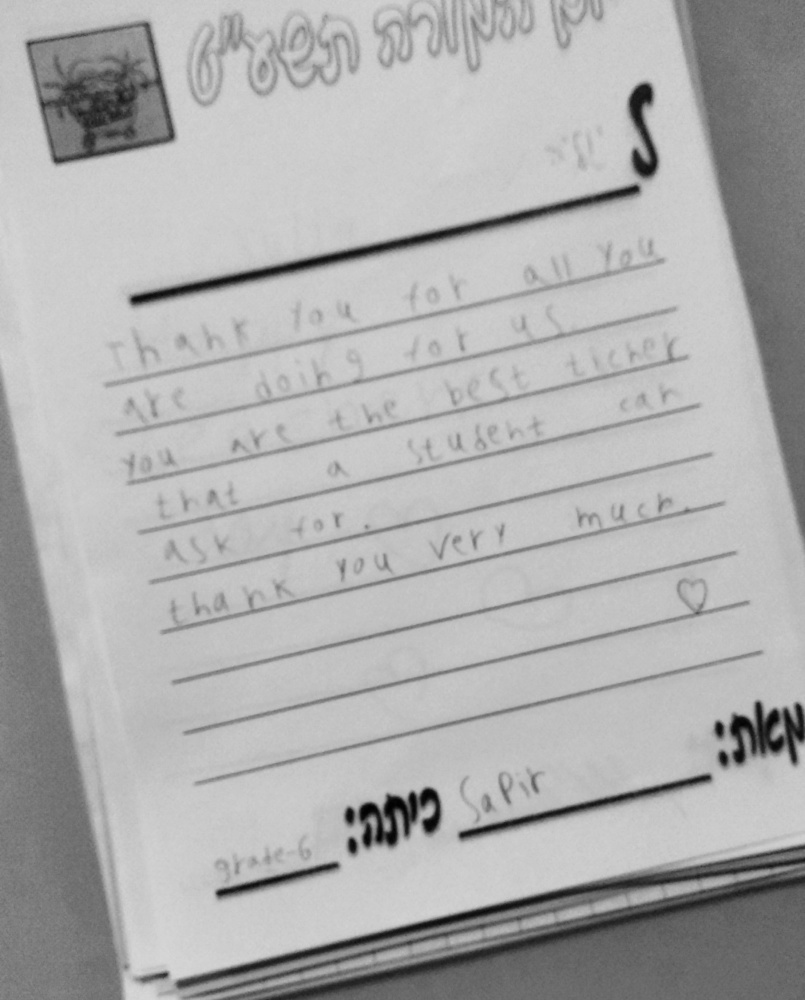 תודה תשע"ט
ל
Thank you for all you
are doing for us.
you are the best ticher
that a student can
ask for.
thank you very much.
מאת: Sapir כיתה: grade-6